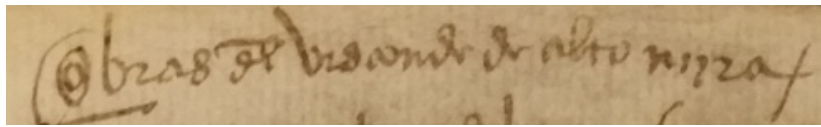 Obras del visconde de alto mira